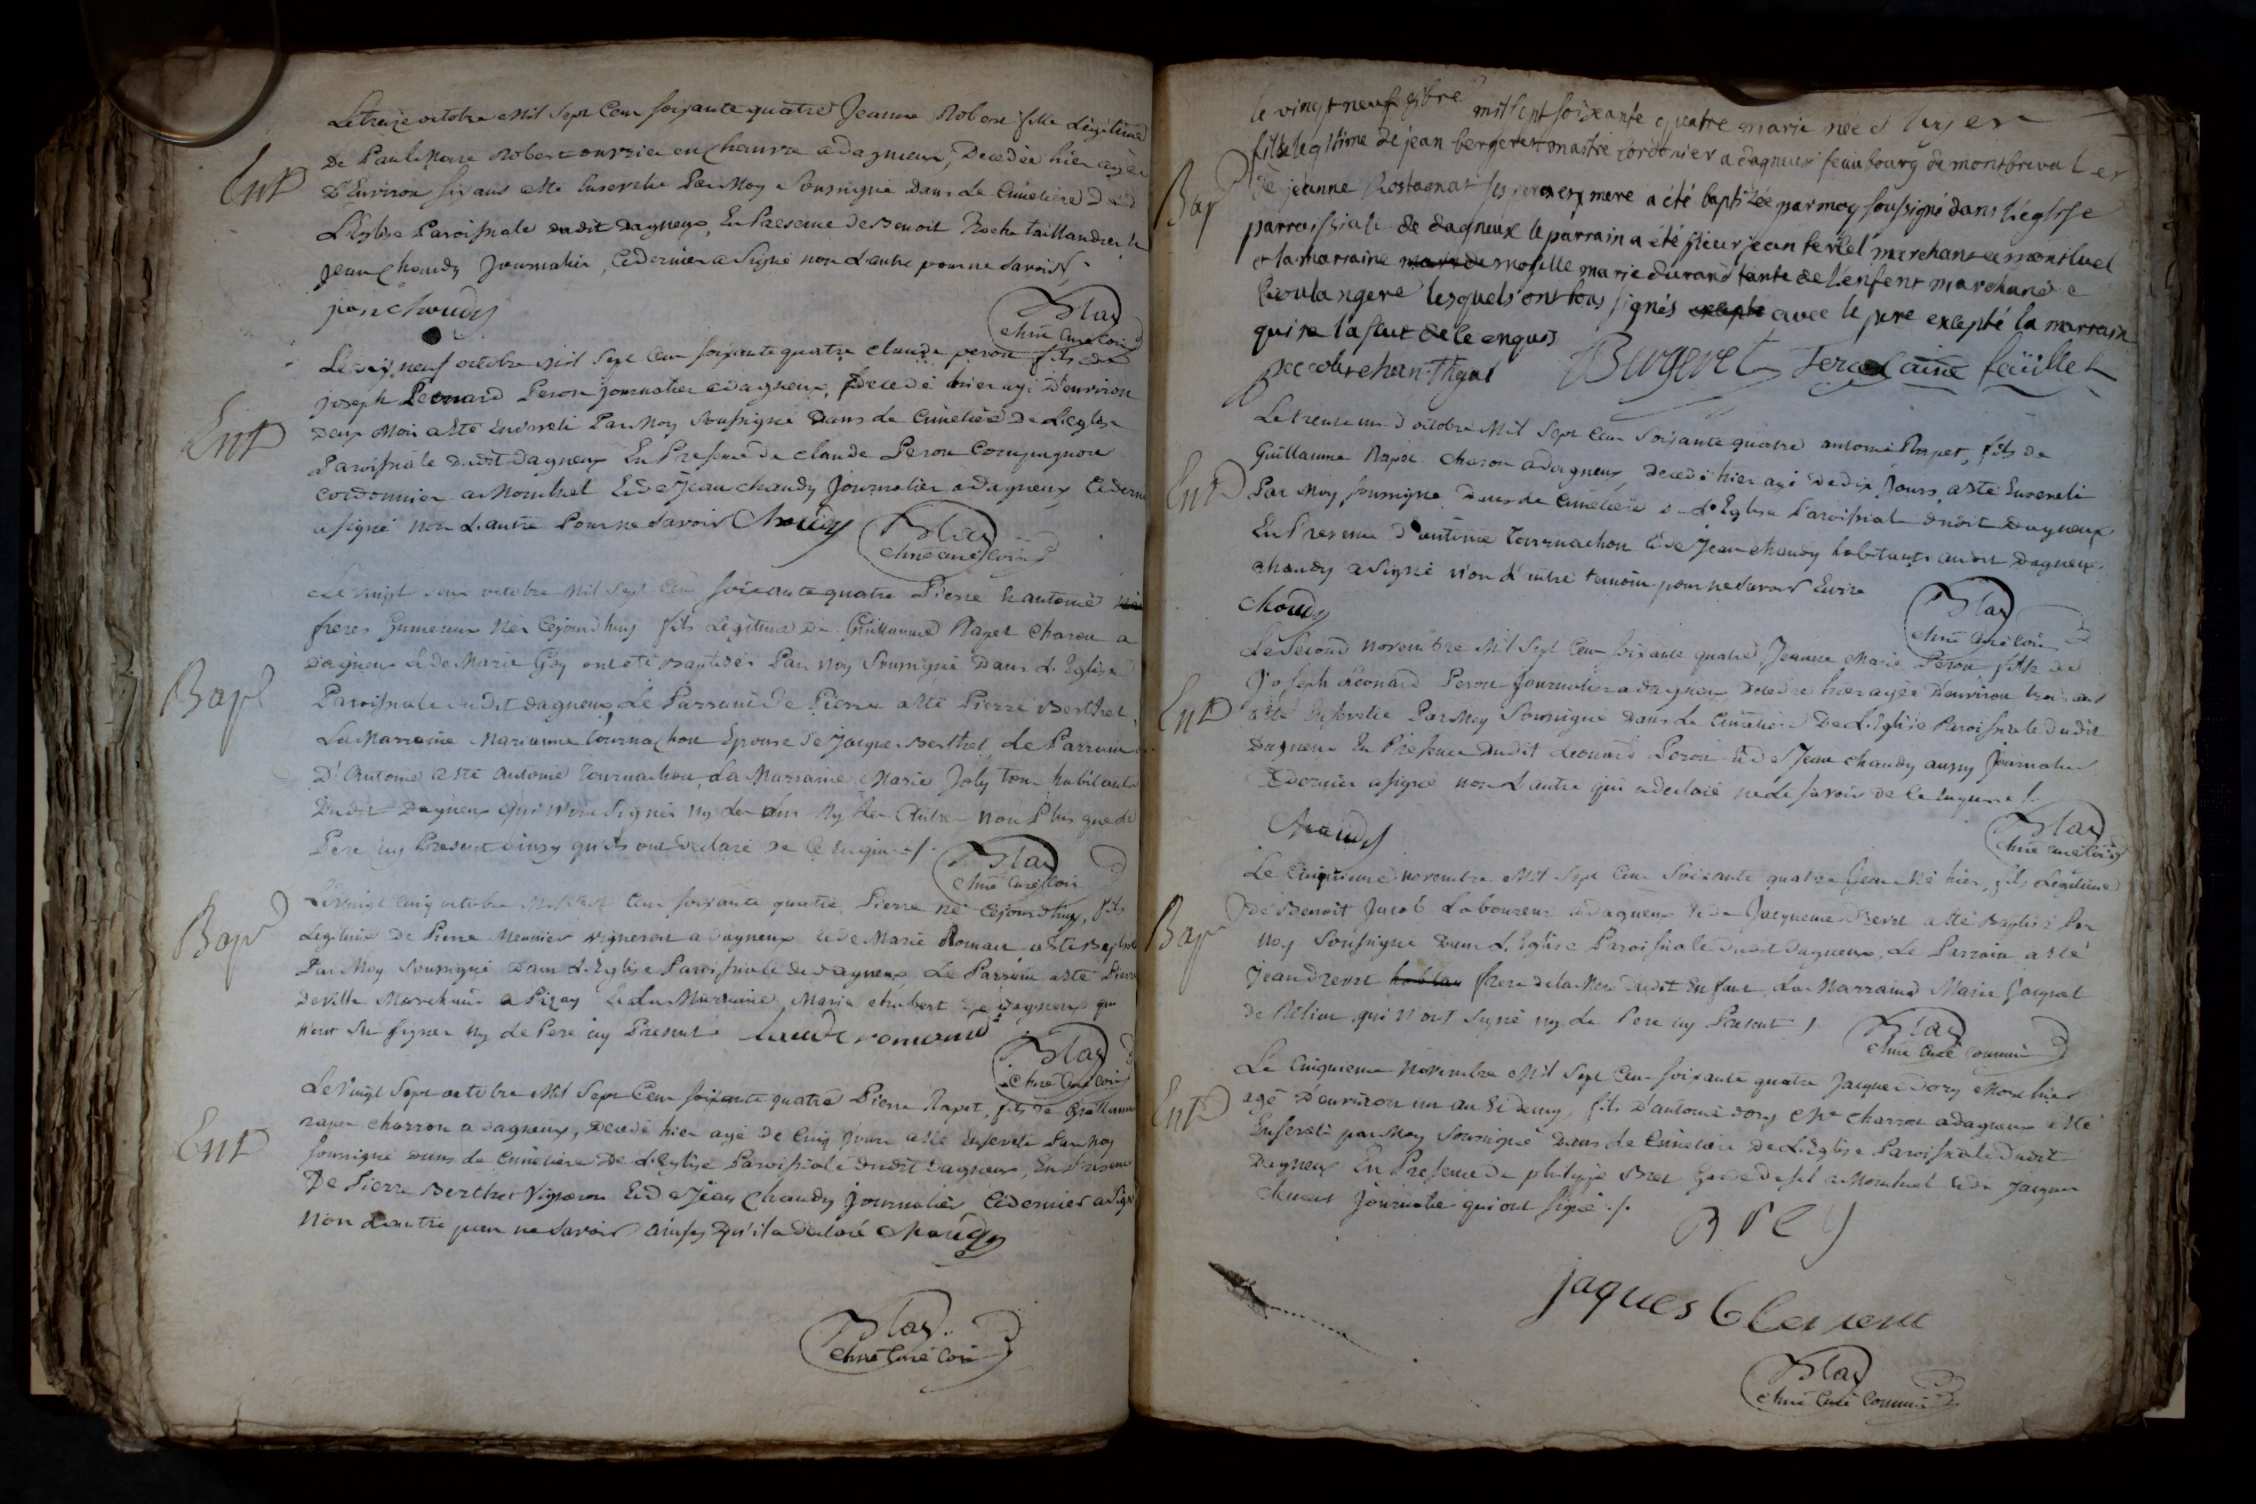 Le treize octobre Mil Sept Cent soixante quatre Jeanne Robert fille Légitime
De Robert ouvrier en Chanvre a dagneux, Decedée hier agée
D'Environ six ans a été Ensevelie Par Moy Soussigné Dans Le Cimetiere De
L'Eglise Paroissiale dudit Dagneux, En Presence de Benoit Roche taillandier &
Jean Chaudy Journalier, Ce dernier a Signé non L'autre pour ne Savoir
Ent
jean chaudy
Blay
Curé
Le dix neuf octobre Mil Sept Cent soixante quatre claude peron fils de
joseph Leonard Peron journalier a dagneux, Decedé hier agé D'environ
Deux Mois a été Enseveli Par Moy Soussigné Dans Le Cimetiere De L'eglise
Ent
Paroissiale dudit dagneux En Presence de claude Peron Compagnon
cordonnier a Montluel & de Jean chaudy Journalier a dagneux Ce dernier
a signé non L'autre Pour ne Savoir Chaudy
Blay
Curé
Le vingt octobre Mil Sept Cent soixante quatre Pierre & antoine
freres Gumeaux Nés Cejourdhuy fils Legitimes De Guillaume Rapet Charon a
Dagneux & de Marie Goy ont été Baptisés Par Moy Soussigné Dans L'Eglise
Bapt
Paroissiale dudit dagneux, Le Parrain De Pierre a été Pierre Berthet,
La Marraine Marianne tournachon Epouse de Jacques Berthet, Le Parrain
D'Antoine a été antoine tournachon La Marraine Marie Joly tous habitants
Dudit Dagneux qui n'ont Signés ny Les uns Ny Les Autres non Plus que Le
Pere icy Present ainsy qu'ils ont declaré De Ce Enquis
Blay
Curé
Le vingt cinq octobre Mil Sept Cent soixante quatre Pierre né Cejourdhuy, fils
Bapt
Legitime de Pierre Meunier vigneron a dagneux & de Marie Romain a été Baptisé
Par Moy Soussigné Dans L'Eglise Paroissiale de dagneux Le Parrain a été Pierre
Deville Marchand a Pizay & La Marraine Marie chabert de Dagneux qui
n'ont Su signer ny Le Pere icy Present
Blay
Curé
Le Vingt Sept octobre Mil Sept Cent soixante quatre Pierre Rapet, fils de Guillaume
rapet charron a dagneux, Decedé hier agé de Cinq Jours a été Enseveli Par Moy
Ent
soussigné Dans Le Cimetiere De L'Eglise Paroissiale dudit Dagneux, En Presence
De Pierre Berthet Vigneron & de Jean Chaudy Journalier, Ce dernier a Signé
Non L'autre pour ne Savoir ainsy qu'il a declaré Chaudy
Blay
Curé
le vingt neuf mil sept soixante quatre marie née
fille legitime de jean bergeret maitre cordonier a dagnieu feaubourg de
Bapt
jeanne Rostagnat ses pere et mere a été baptizée par moy soussigné dans l'eglise
parroissiale de dagneux le parrain a été sieur jean terrel marchant a montluel
et la marraine demoiselle marie durand tante de l'enfent marchande
boulangere lesquels ont tous signés excepté avec le pere excepté la marraine
qui ne la seut de ce enquis
Burgeret Terrel ainé feüillet
Le trente un d'octobre Mil Sept Cent Soixante quatre antoine Rapet, fils de
Guillaume Rapet charon a dagneux, Decedé hier agé De dix Jours, a été Enseveli
Ent
Par Moy soussigné Dans Le Cimetiere de L'Eglise Paroissiale dudit Dagneux
En Presence d'antoine tournachon & de Jean chaudy habitants audit Dagneux.
chaudy a Signé non L'autre temoin pour ne Savoir Ecrire
Chaudy
Blay
Curé
Le Second novembre Mil Sept Cent soixante quatre, Jeanne Marie Peron fille de
Joseph Léonard Peron journalier a dagneux Decedée hier agée d'environ trois ans
Ent
a été Ensevelie Par Moy Soussigné Dans Le Cimetiere De L'Eglise Paroissiale dudit
Dagneux En Presence dudit Leonard Peron & de Jean chaudy aussy Journalier
Ce dernier a signé non L'autre qui a declaré ne Le Savoir de Ce Enquis
Chaudy
Blay
Curé
Le Cinquieme novembre Mil Sept Cent Soixante quatre Jean Né hier, fils Légitime
De Benoit Jacob Laboureur a dagneux & de Jacqueme a été Baptisé Par
Bapt
Moy Soussigné Dans L'Eglise Paroissiale dudit dagneux, Le Parrain a été
Jean frere de la Mere dudit Enfant, La Marraine Marie Jacquet
de qui n'ont Signé ny Le Pere icy Present
Blay
Curé
Le Cinquieme Novembre Mil Sept Cent soixante quatre Jacques Dory
agé D'environ un an & demy, fils D'antoine dory charron a dagneux a été
Ent
Enseveli par Moy Soussigné Dans Le Cimetiere De L'Eglise Paroissiale Dudit
Dagneux En Presence De philippe Brey a Montluel & de Jacques
Clement Journalier qui ont signé
Brey
jaques Clement
Blay
Curé